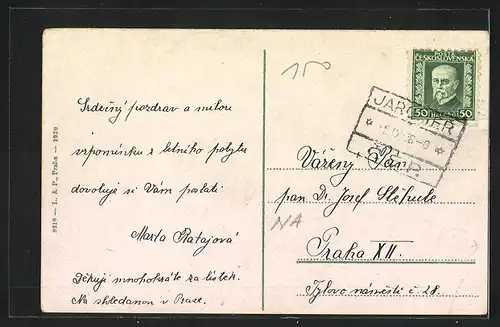 150
POŠTA
ČESKOSLOVENSKÁ
50 50
JAROMĚŘ
Srdečný pozdrav a milou
vzpomínku z letního pobytu
dovoluji si Vám poslati
Marta Ratajová
Děkuji mnohokráte za lístek.
Na shledanou v Praze.
8218 – L. & P., Praha – 1920
Vážený Pán
pan Dr. Josef
NA
Praha XII.
Tylovo náměstí č. 28.